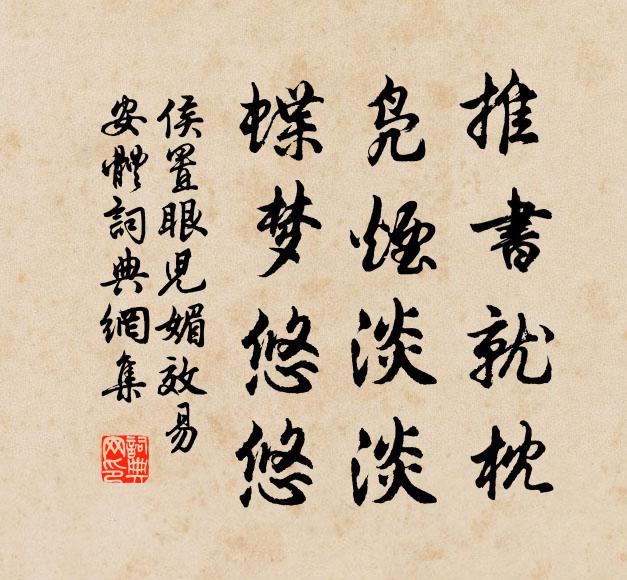 推書就枕
凫煙淡淡
蝶梦悠悠
侯置眼児媚效易
安體詞典網集
詞典
网印